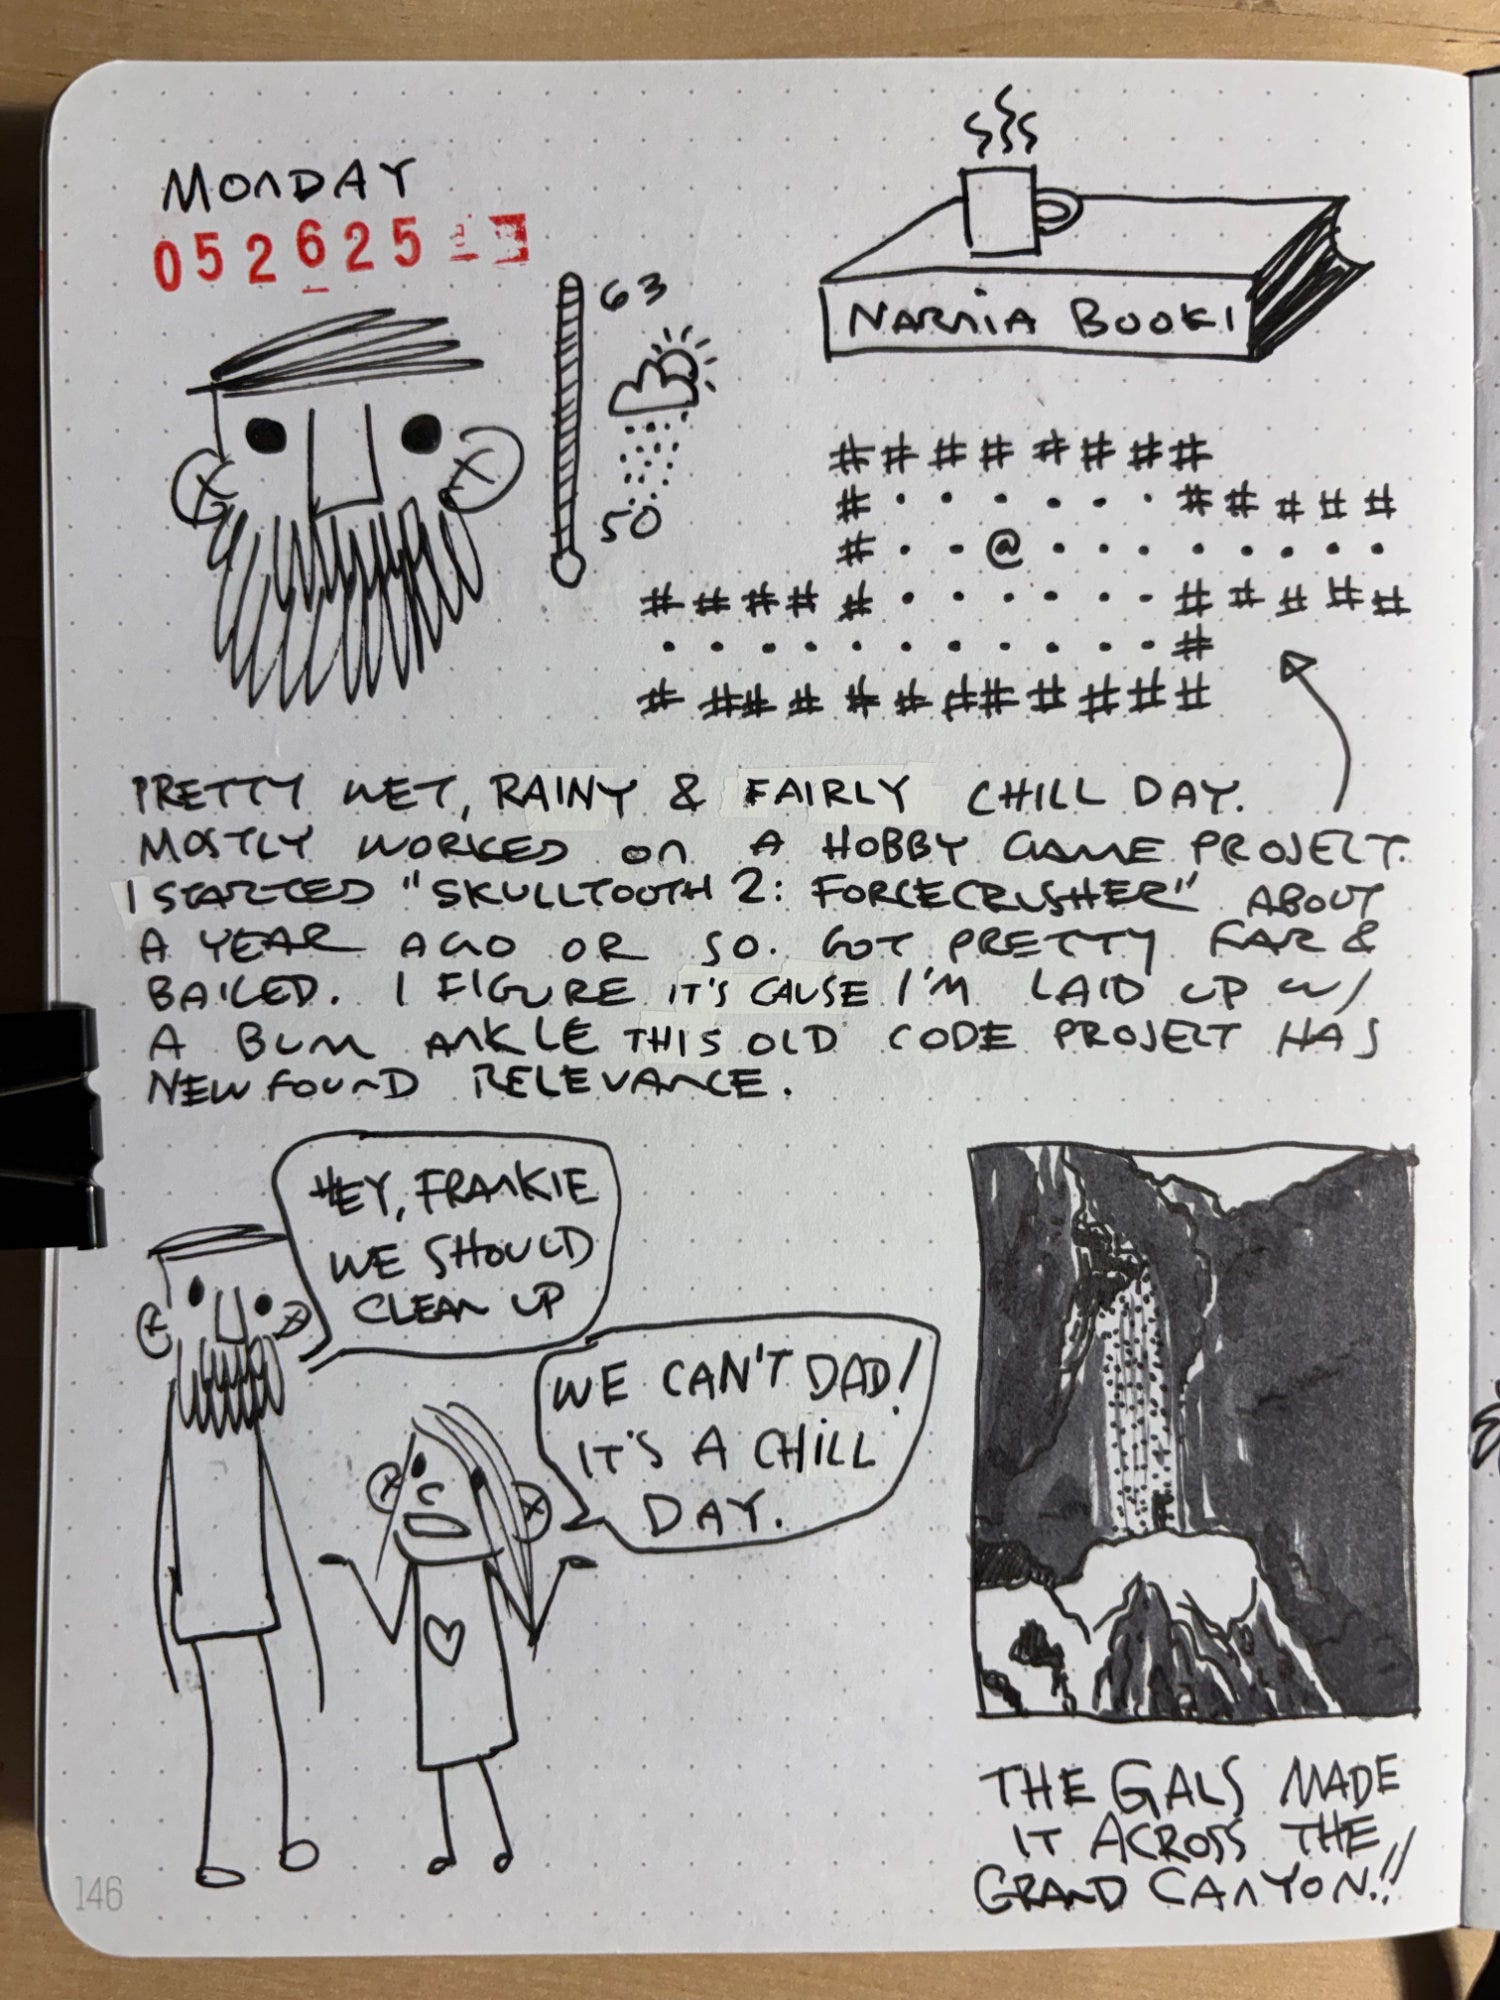 MONDAY
052625
63
50
NARNIA BOOK 1
########
#······#####
#··@·········
#####······#####
···········#
############
PRETTY WET, RAINY & FAIRLY CHILL DAY.
MOSTLY WORKED ON A HOBBY GAME PROJECT.
I STARTED "SKULLTOOTH 2: FORCECRUSHER" ABOUT
A YEAR AGO OR SO. GOT PRETTY FAR &
BAILED. I FIGURE IT'S CAUSE I'M LAID UP W/
A BUM ANKLE THIS OLD CODE PROJECT HAS
NEW FOUND RELEVANCE.
HEY, FRANKIE
WE SHOULD
CLEAN UP
WE CAN'T DAD!
IT'S A CHILL
DAY.
THE GALS MADE
IT ACROSS THE
GRAND CANYON!!
146